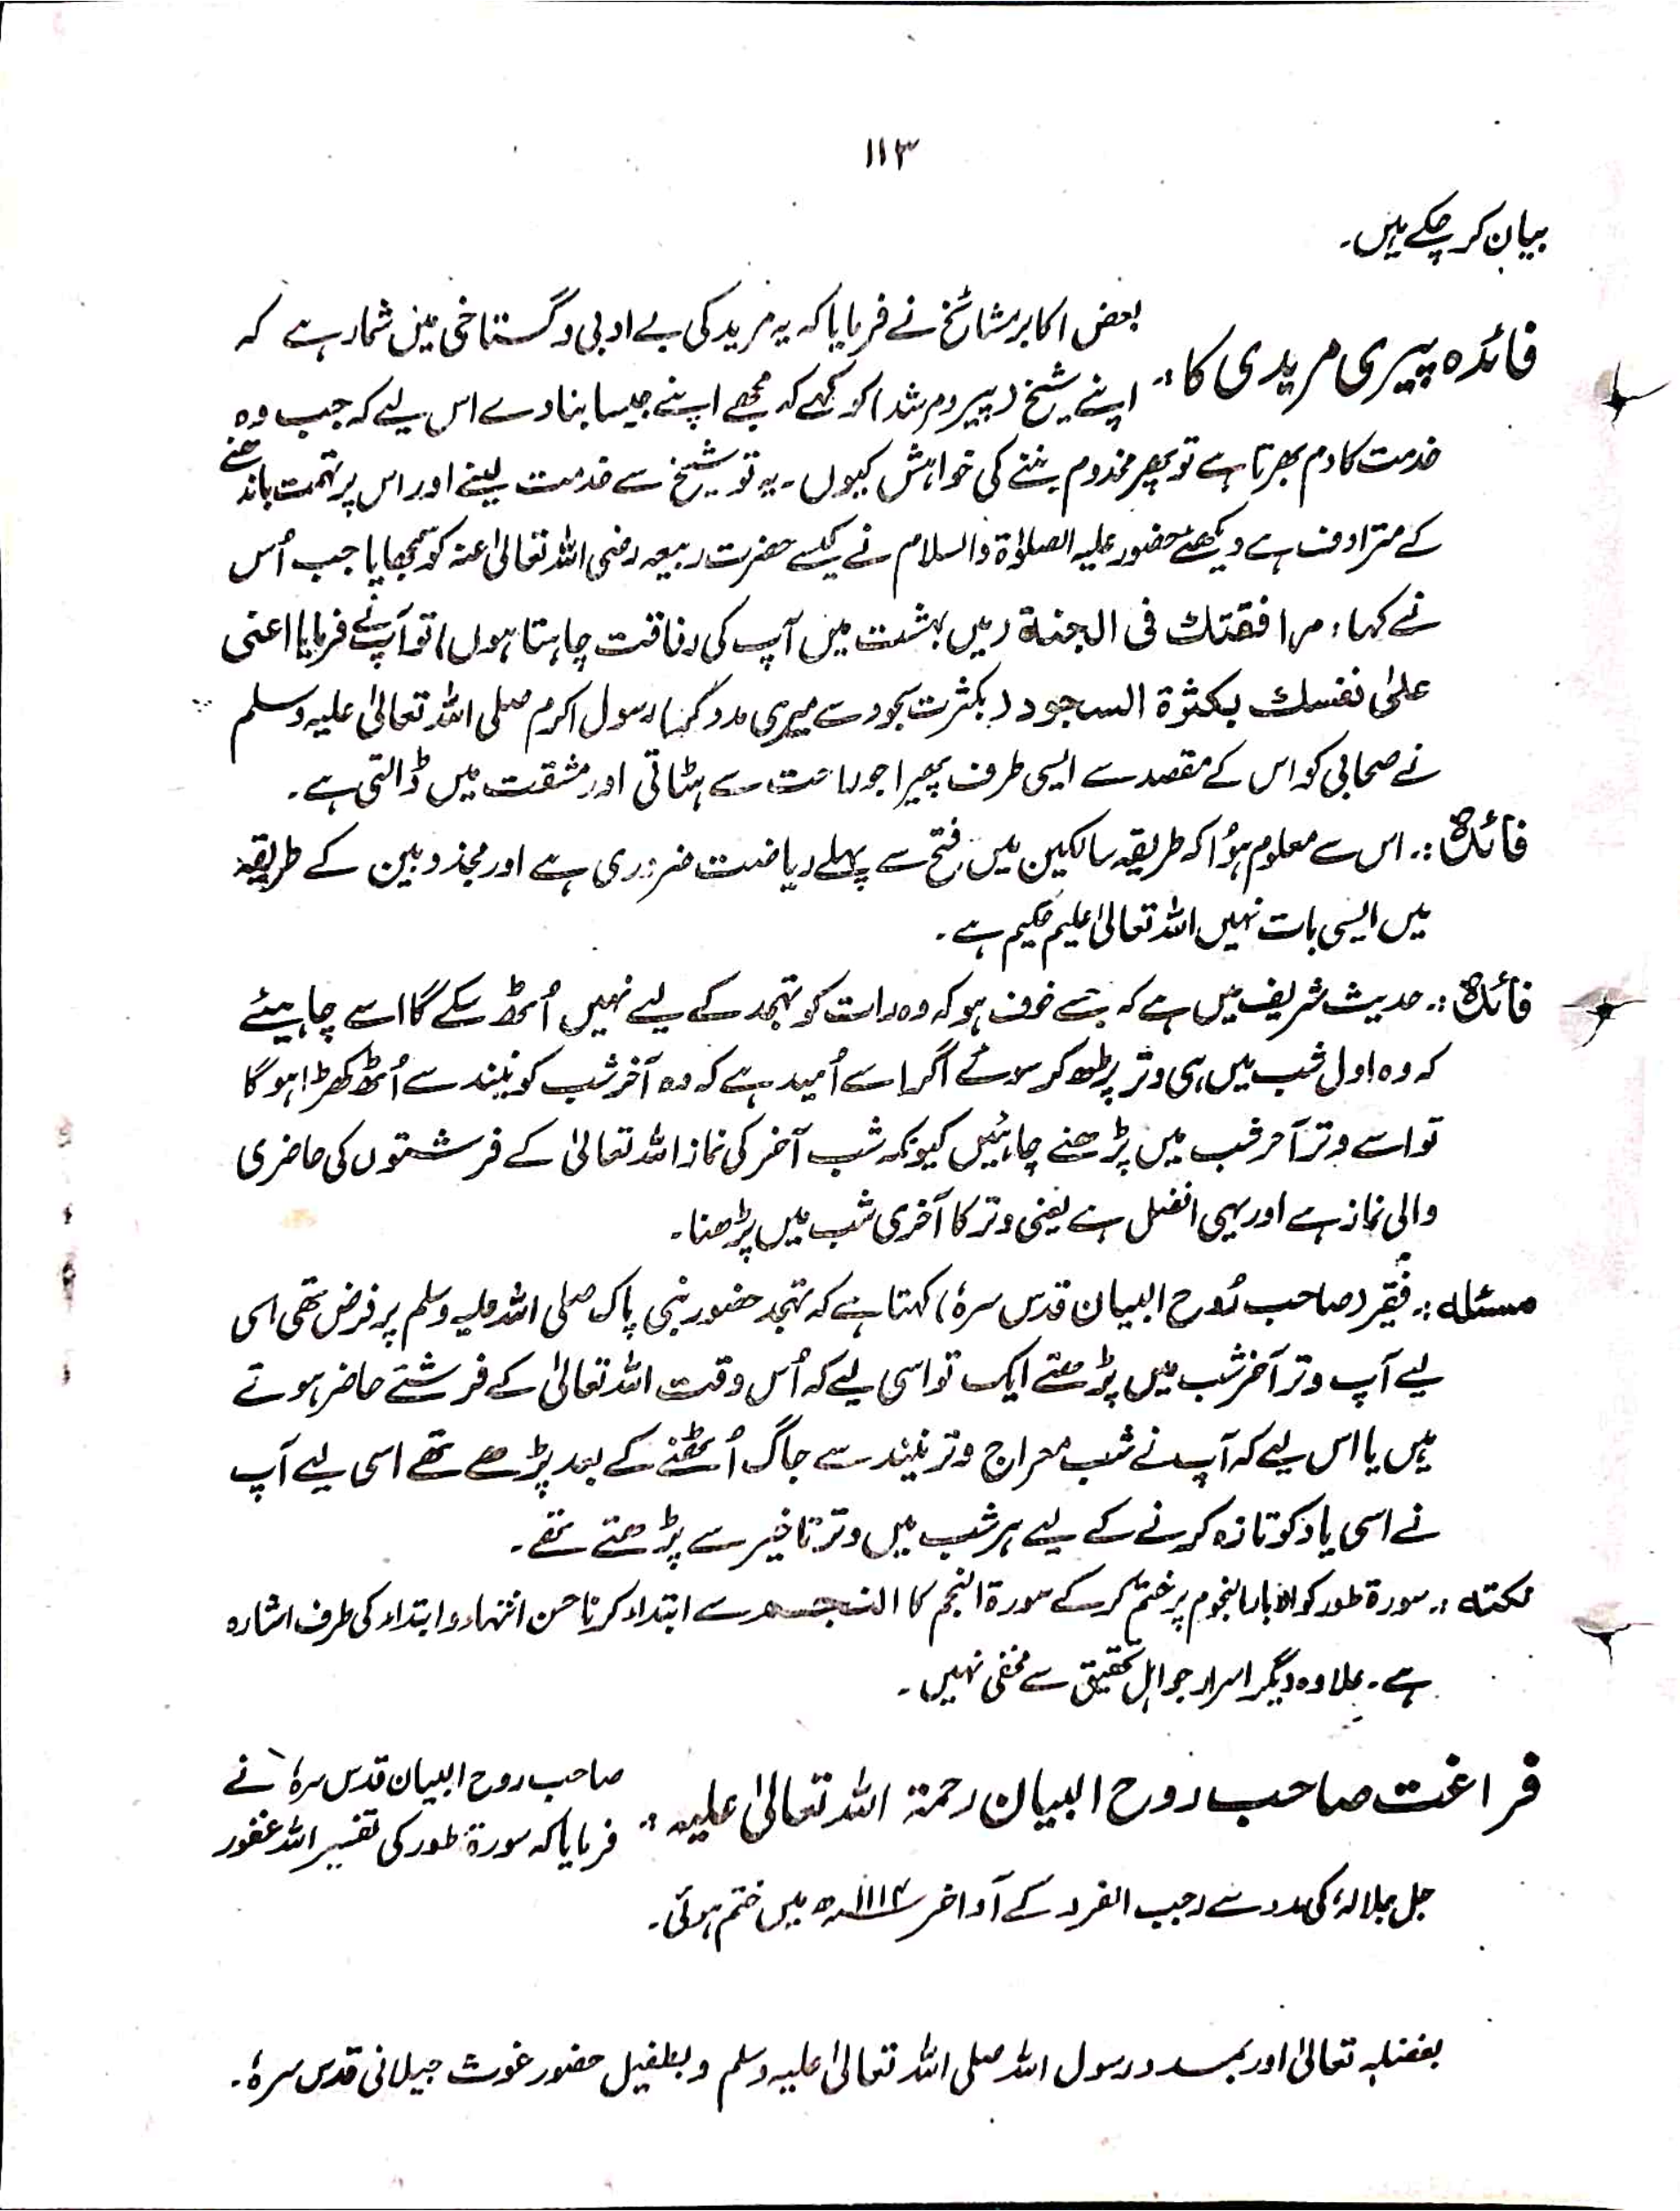 ۱۱۳
بیان کر چکے ہیں۔
فائدہ پیری مریدی کا :۔ بعض اکابر مشائخ نے فرمایا کہ یہ مرید کی بے ادبی و گستاخی میں شمار ہے کہ
اپنے شیخ (پیرو مرشد) کو کہے کہ مجھے اپنے جیسا بنا دے اس لیے کہ جب وہ
خدمت کا دم بھرتا ہے تو پھر مخدوم بننے کی خواہش کیوں۔ یہ تو شیخ سے خدمت لینے اور اس پر تہمت باندھنے
کے مترادف ہے دیکھئے حضور علیہ الصلوٰۃ والسلام نے کیسے حضرت ربیعہ رضی اللہ تعالیٰ عنہ کو سمجھایا جب اُس
نے کہا، مرافقتك فی الجنة (میں بہشت میں آپ کی رفاقت چاہتا ہوں) تو آپ نے فرمایا اعنی
علیٰ نفسك بكثرة السجود (بکثرت سجود سے میری مدد کر) رسول اکرم صلی اللہ تعالیٰ علیہ وسلم
نے صحابی کو اس کے مقصد سے ایسی طرف پھیرا جو راحت سے ہٹاتی اور مشقت میں ڈالتی ہے۔
فائدہ :۔ اس سے معلوم ہُوا کہ طریقہ سالکین میں فتح سے پہلے ریاضت ضروری ہے اور مجذوبین کے طریقہ
میں ایسی بات نہیں اللہ تعالیٰ علیم حکیم ہے۔
فائدہ :۔ حدیث شریف میں ہے کہ جسے خوف ہو کہ وہ رات کو تہجد کے لیے نہیں اُٹھ سکے گا اسے چاہیئے
کہ وہ اول شب میں ہی وتر پڑھ کر سوئے اگر اسے اُمید ہے کہ وہ آخر شب کو نیند سے اُٹھ کھڑا ہو گا
تو اسے وتر آخر شب میں پڑھنے چاہئیں کیونکہ شب آخر کی نماز اللہ تعالیٰ کے فرشتوں کی حاضری
والی نماز ہے اور یہی افضل ہے یعنی وتر کا آخری شب میں پڑھنا۔
مسئلہ :۔ فقیر (صاحب رُوح البیان قدس سرہٗ) کہتا ہے کہ تہجد حضور نبی پاک صلی اللہ علیہ وسلم پر فرض تھی اسی
لیے آپ وتر آخر شب میں پڑھتے ایک تو اسی لیے کہ اُس وقت اللہ تعالیٰ کے فرشتے حاضر ہوتے
ہیں یا اس لیے کہ آپ نے شب معراج وتر نیند سے جاگ اُٹھنے کے بعد پڑھے تھے اسی لیے آپ
نے اسی یاد کو تازہ کرنے کے لیے ہر شب میں وتر تاخیر سے پڑھتے تھے۔
نکتہ :۔ سورۃ طور کو ادبار النجوم پر ختم کر کے سورۃ النجم کا النجم سے ابتداء کرنا حسن انتہاء و ابتداء کی طرف اشارہ
ہے۔ علاوہ دیگر اسرار جو اہل تحقیق سے مخفی نہیں۔
فراغت صاحب روح البیان رحمۃ اللہ تعالیٰ علیہ :۔ صاحب روح البیان قدس سرہٗ نے
فرمایا کہ سورۃ طور کی تفسیر اللہ غفور
جل جلالہٗ کی مدد سے رجب الفرد کے اواخر ۱۱۱۴ھ میں ختم ہوئی۔
بفضلہ تعالیٰ اور بمدد رسول اللہ صلی اللہ تعالیٰ علیہ وسلم و بطفیل حضور غوث جیلانی قدس سرہٗ۔